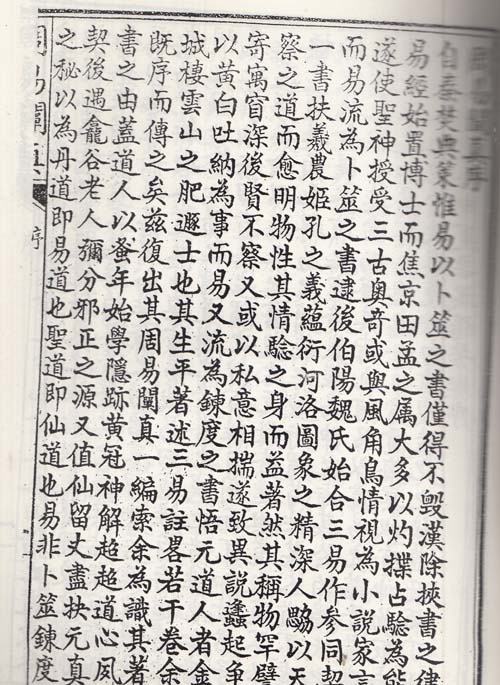 周易闡真序
自秦焚典策惟易以卜筮之書僅得不毀漢除挾書之律
易經始置博士而焦京田孟之属大多以灼揲占驗為能
遂使聖神授受三古奥竒或與風角鳥情視為小説家言
而易流為卜筮之書逮後伯陽魏氏始合三易作參同契
一書扶羲農姬孔之義蘊衍河洛圖象之精深人勵以天
察之道而愈明物性其情驗之身而益著然其稱物罕譬
寄寓窅深後賢不察又或以私意相揣遂致異説蠭起争
以黃白吐納為事而易又流為鍊度之書悟元道人者金
城棲雲山之肥遯士也其生平著述三易註畧若干卷余
既序而傳之矣兹復出其周易闡真一編索余為識其著
書之由蓋道人以蚤年始學隱跡黃冠神解超超道心夙
契後遇龕谷老人彌分邪正之源又值仙留丈盡抉元真
之秘以為丹道即易道也聖道即仙道也易非卜筮鍊度
周易闡真
序